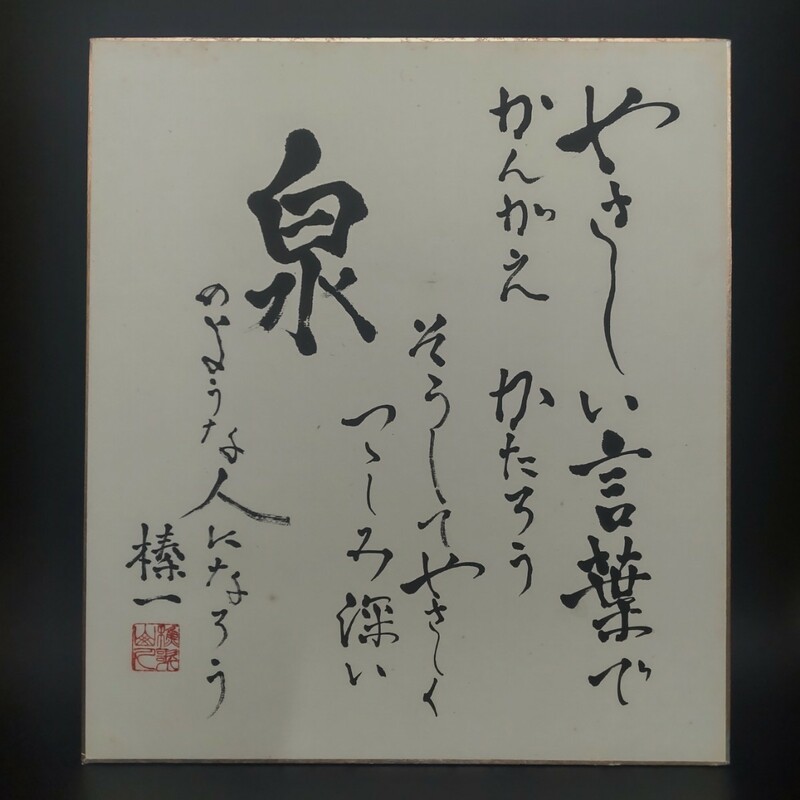 やさしい言葉で
かんがえ かたろう
そうしてやさしく
つゝしみ深い
泉
のような人になろう
榛一